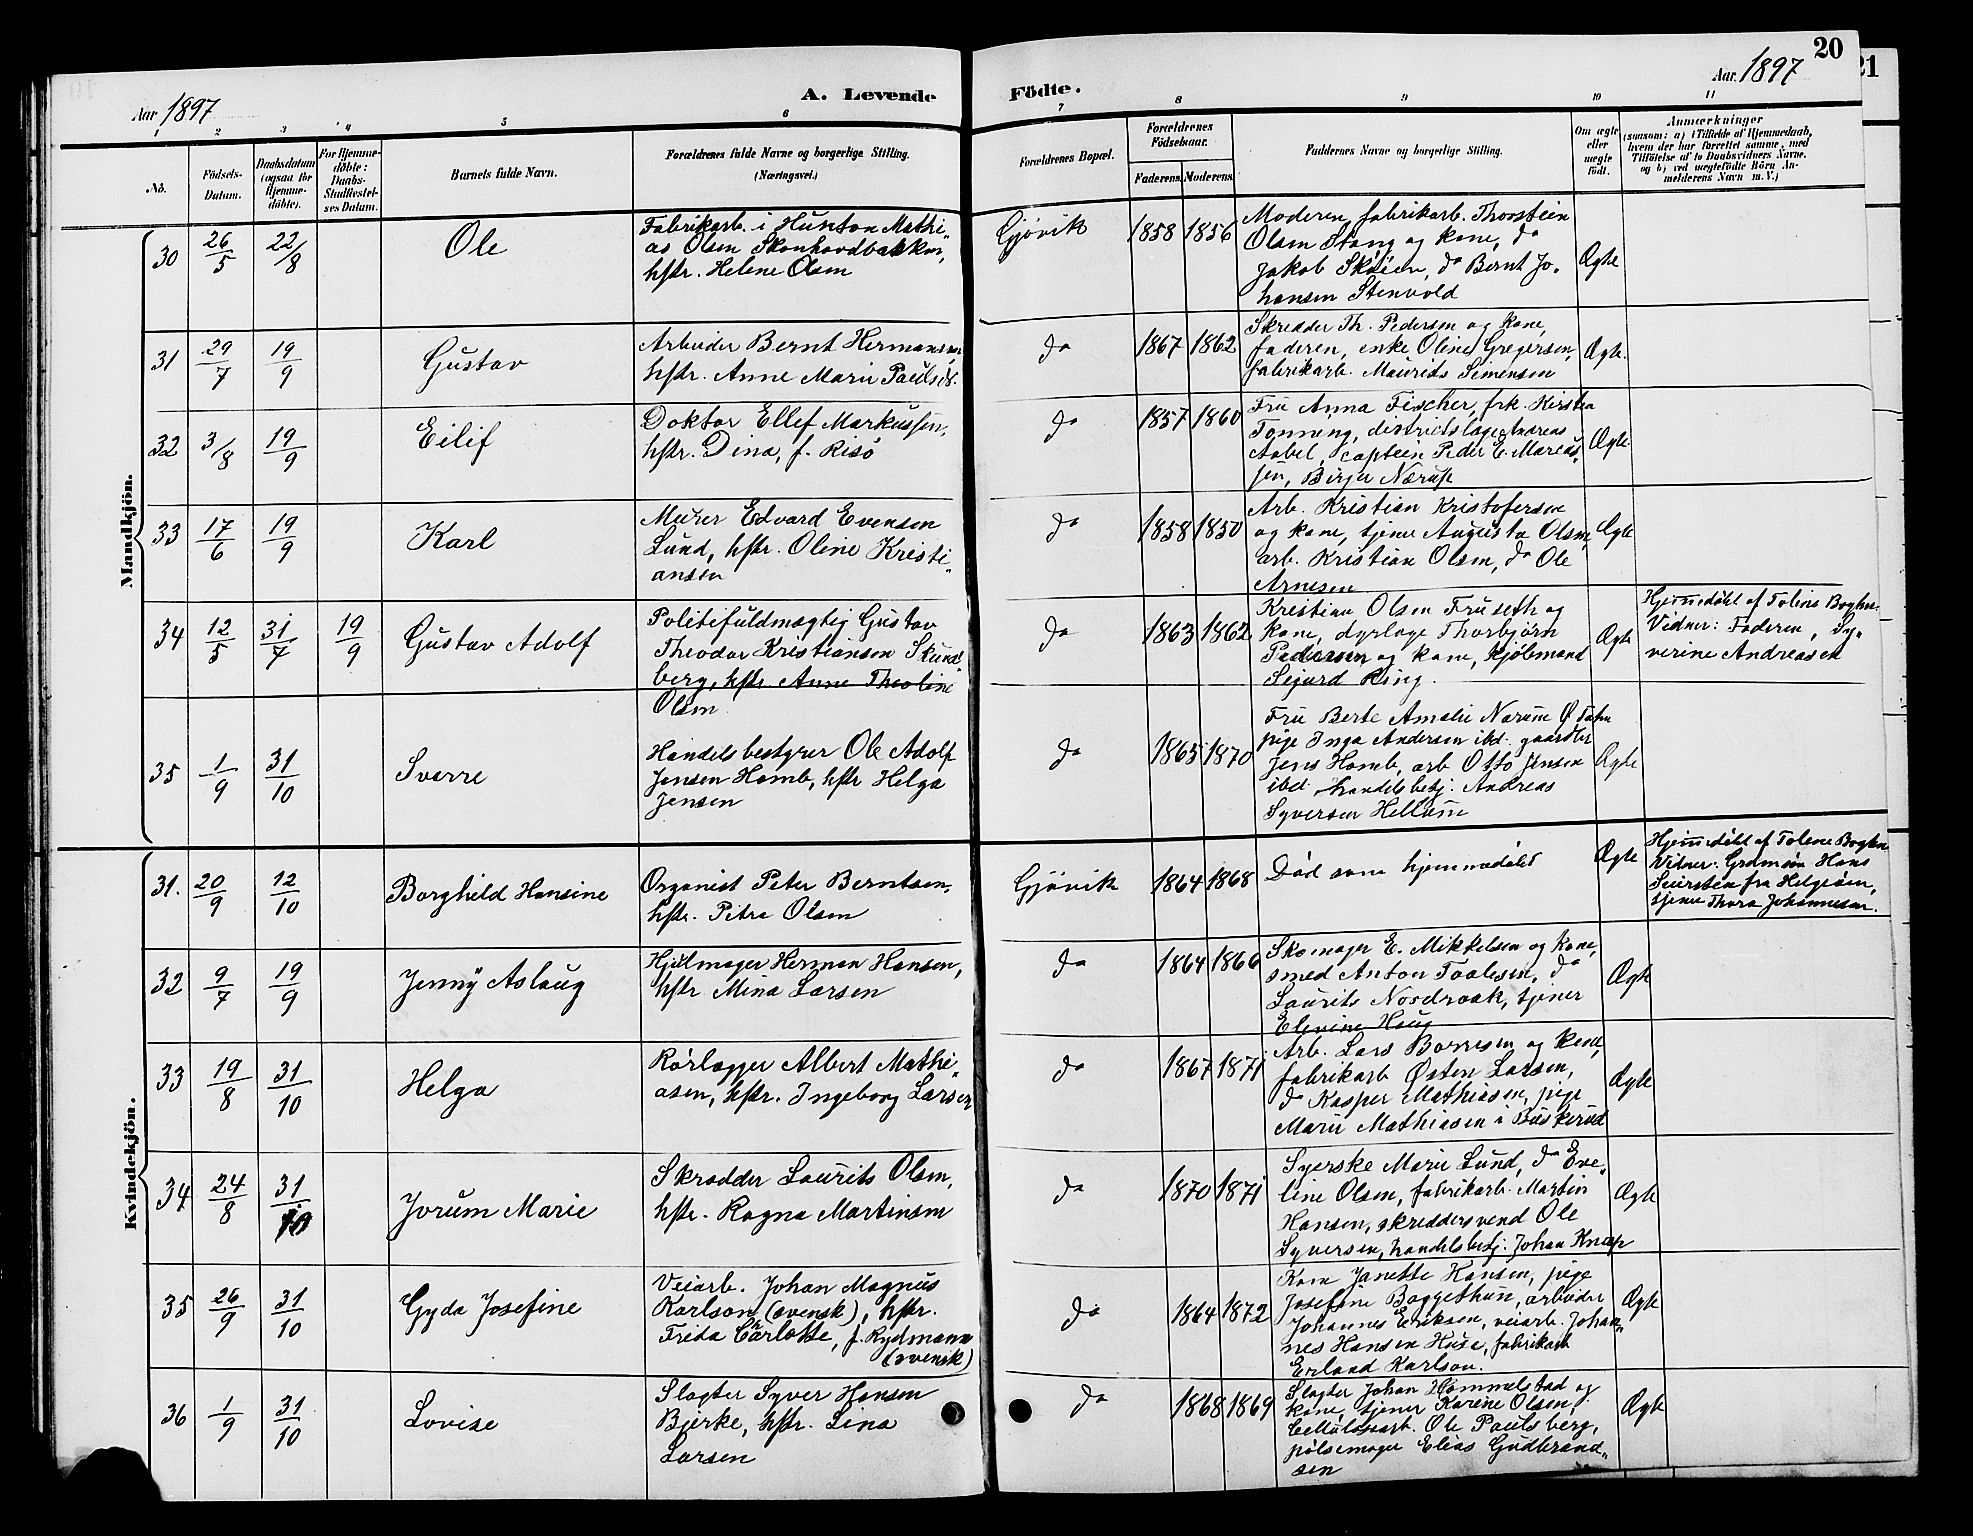 20
21
Aar 1897
A. Levende
Födte.
Aar 1897
1 2 3 4 5 6 7 8 9 10 11
No.
Födsels-
Datum.
Daabsdatum
(ogsaa for
Hjemme-
döbte).
For Hjemme-
döbte:
Daabs-
Stadfæstel-
ses Datum.
Barnets fulde Navn.
Forældrenes fulde Navne og borgerlige Stilling.
(Næringsvei.)
Forældrenes Bopæl.
Forældrenes
Födselsaar.
Faderens. Moderens.
Faddernes Navne og borgerlige Stilling.
Om ægte
eller
uægte
født.
Anmærkninger
(saasom: a) i Tilfælde af Hjemmedaab,
hvem der har forrettet samme, med
Tilföielse af to Daabsvidners Navne,
og b) ved uægtefödte Börn An-
melderens Navn m. V.)
Mandkjön.
30 26/5 22/8 Ole
Fabrikarb. i Hunton Mathi-
as Olsen Skonhovdbakken,
hstr. Helene Olsen
Gjøvik 1858 1856
Moderen, fabrikarb. Thorstein
Olsen Stang og kone, do
Jakob Skøien, do Bernt Jo-
hansen Stenvold
Ægte
31 29/7 19/9 Gustav
Arbeider Bernt Hermansen
hstr. Anne Marie Paulsd.
do 1867 1862
Skrædder Th. Pedersen og kone,
faderen, enke Oline Gregersen,
fabrikarb. Maurits Simensen
Ægte.
32 3/8 19/9 Eilif
Doktor Ellef Markussen,
hstr. Dina, f. Risø
do 1857 1860
Fru Anna Fischer, frk. Kirsten
Tonning, districtslæge Andreas
Aabel, captein Peder E. Marcus-
sen, Birger Nærup
Ægte
33 17/6 19/9 Karl
Murer Edvard Evensen
Lund, hstr. Oline Kristi-
ansen
do 1858 1850
Arb. Kristian Kristofersen
og kone, tjener Augusta Olsen,
arb. Kristian Olsen, do Ole
Arnesen
Ægte
34 12/5 31/7 19/9 Gustav Adolf
Politifuldmægtig Gustav
Theodor Kristiansen Skund-
berg, hstr Anne Theoline
Olsen
do 1863 1862
Kristian Olsen Fruseth og
kone, dyrlæge Thorbjørn
Pedersen og kone, kjøbmand
Sigurd Ring.
Ægte
Hjemmedøbt af Toline Boghn.
Vidner: Faderen, Sy-
verine Andreasen
35 1/9 31/10 Sverre
Handelsbestyrer Ole Adolf
Jensen Homb, hstr Helga
Jensen
do 1865 1870
Fru Berte Amalie Narum Ø Toten
pige Inga Andersen ibd. gaardbr
Jens Homb, arb Otto Jensen
ibd, handelsbetj. Andreas
Syversen Hellum
Ægte
Kvindekjön.
31. 20/9 12/10 Borghild Hansine
Organist Peter Berntsen,
hstr. Petra Olsen
Gjøvik 1864 1868
Død som hjemmedøbt
Ægte
Hjemmedøbt af Tolene Boghn
Vidner: Hans
fra Helgøen,
tjener Thora Johannesen.
32 9/7 19/9 Jenny Aslaug
Hjulmager Herman Hansen,
hstr Mina Larsen
do 1864 1866
Skomager E. Mikkelsen og kone,
smed Anton Paalesen, do
Laurits Nordraak, tjener
Elevine Haug
Ægte
33 19/8 31/10 Helga
Rørlægger Albert Mathi-
asen, hstr. Ingeborg Larsen
do 1867 1871
Arb. Lars Borresen og kone,
fabrikarb Østen Larsen,
do Kasper Mathiasen, pige
Marie Mathiasen i Buskerud
Ægte
34 24/8 31/10 Jorum Marie
Skrædder Laurits Olsen,
hstr. Ragna Martinsen
do 1870 1871
Syerske Marie Lund, do Eve-
line Olsen, fabrikarb. Martin
Hansen, skreddersvend Ole
Syversen, handelsbetj. Johan Knap
Ægte
35 26/9 31/10 Gyda Josefine
Veiarb. Johan Magnus
Karlson (svensk), hstr.
Frida Charlotte, f. Rydmann
(svensk)
do 1864 1872
Kone Janette Hansen, pige
Josefine Baggethun, arbeider
Johannes Eriksen, veiarb. Johan-
nes Hansen Huse, fabrikarb
Erland Karlson.
Ægte
36 1/9 31/10 Lovise
Slagter Syver Hansen
Bjerke, hstr. Lina
Larsen
do 1868 1869
Slagter Johan Hommelstad og
kone, tjener Karine Olsen,
Cellulosearb. Ole Paulsberg,
pølsemager Elias Gudbrand-
sen
Ægte